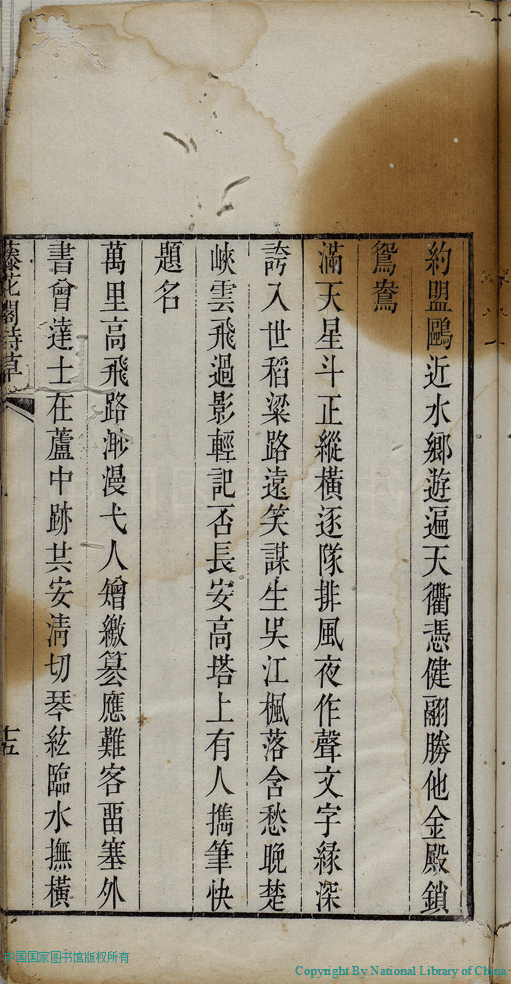 約盟鷗近水鄉遊遍天衢憑健翮勝他金殿鎖
鴛鴦
滿天星斗正縱橫逐隊排風夜作聲文字緣深
誇入世稻粱路遠笑謀生吳江楓落含愁晚楚
峽雲飛過影輕記否長安高塔上有人擕筆快
題名
萬里高飛路渺漫弋人矰繳篡應難客畱塞外
書曾達士在蘆中跡共安淸切琴絃臨水撫橫
藤花閣詩草
十五
中国国家图书馆版权所有
Copyright By National Library of China